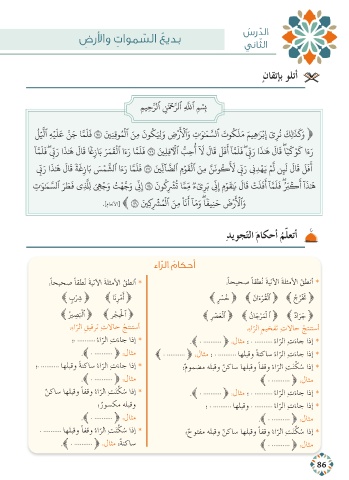 الدّرسُ
الثاني
بديعُ السّمواتِ والأرضِ
أتلو بإتقانٍ
بِسْمِ ٱللَّهِ ٱلرَّحْمَٰنِ ٱلرَّحِيمِ
﴿ وَكَذَٰلِكَ نُرِىٓ إِبْرَٰهِيمَ مَلَكُوتَ ٱلسَّمَٰوَٰتِ وَٱلْأَرْضِ وَلِيَكُونَ مِنَ ٱلْمُوقِنِينَ ۝ فَلَمَّا جَنَّ عَلَيْهِ ٱلَّيْلُ
رَءَا كَوْكَبًا ۖ قَالَ هَٰذَا رَبِّى ۖ فَلَمَّآ أَفَلَ قَالَ لَآ أُحِبُّ ٱلْءَافِلِينَ ۝ فَلَمَّا رَءَا ٱلْقَمَرَ بَازِغًا قَالَ هَٰذَا رَبِّى ۖ فَلَمَّآ
أَفَلَ قَالَ لَئِن لَّمْ يَهْدِنِى رَبِّى لَأَكُونَنَّ مِنَ ٱلْقَوْمِ ٱلضَّآلِّينَ ۝ فَلَمَّا رَءَا ٱلشَّمْسَ بَازِغَةً قَالَ هَٰذَا رَبِّى
هَٰذَآ أَكْبَرُ ۖ فَلَمَّآ أَفَلَتْ قَالَ يَٰقَوْمِ إِنِّى بَرِىٓءٌ مِّمَّا تُشْرِكُونَ ۝ إِنِّى وَجَّهْتُ وَجْهِىَ لِلَّذِى فَطَرَ ٱلسَّمَٰوَٰتِ
وَٱلْأَرْضَ حَنِيفًا ۖ وَمَآ أَنَا۠ مِنَ ٱلْمُشْرِكِينَ ۝ ﴾ [الأنعام].
أتعلّمُ أحكامَ التّجويدِ
أحكامُ الرّاءِ
* أنطقُ الأمثلةَ الآتيةَ نُطقاً صحيحاً.
﴿ ٱلْقُرْءَانُ ﴾ ﴿ خُسْرٍ ﴾
﴿ جَرَادٌ ﴾ ﴿ ٱلْمَرْجَانُ ﴾ ﴿ ٱلْعَصْرِ ﴾
أستنتجُ حالاتِ تفخيمِ الرّاءِ.
* إذا جاءتِ الرّاءُ ........ ؛ مثال. ﴿ ........ ﴾.
* إذا جاءتِ الرّاءُ ساكنةً وقبلها ........ ؛ مثال. ﴿ ........ ﴾.
* إذا سُكّنتِ الرّاءُ وقفاً وقبلها ساكنٌ وقبله مضمومٌ؛
مثال. ﴿ ........ ﴾.
* إذا جاءتِ الرّاءُ ........ ؛ مثال. ﴿ ........ ﴾.
* إذا جاءتِ الرّاءُ ........ وقبلها ........ ؛
مثال. ﴿ ........ ﴾.
* إذا سُكّنتِ الرّاءُ وقفاً وقبلها ساكنٌ وقبله مفتوحٌ؛
مثال. ﴿ ........ ﴾.
* أنطقُ الأمثلةَ الآتيةَ نُطقاً صحيحاً.
أستنتجُ حالاتِ ترقيقِ الرّاءِ.
* إذا جاءتِ الرّاءُ ........ ؛
مثال. ﴿ ........ ﴾.
* إذا جاءتِ الرّاءُ ساكنةً وقبلها ........ ؛
مثال. ﴿ ........ ﴾.
* إذا سُكّنتِ الرّاءُ وقفاً وقبلها ساكنٌ
وقبله مكسورٌ؛
مثال. ﴿ ........ ﴾.
* إذا سُكّنتِ الرّاءُ وقفاً وقبلها ........
ساكنةٌ؛ مثال. ﴿ ........ ﴾.
86